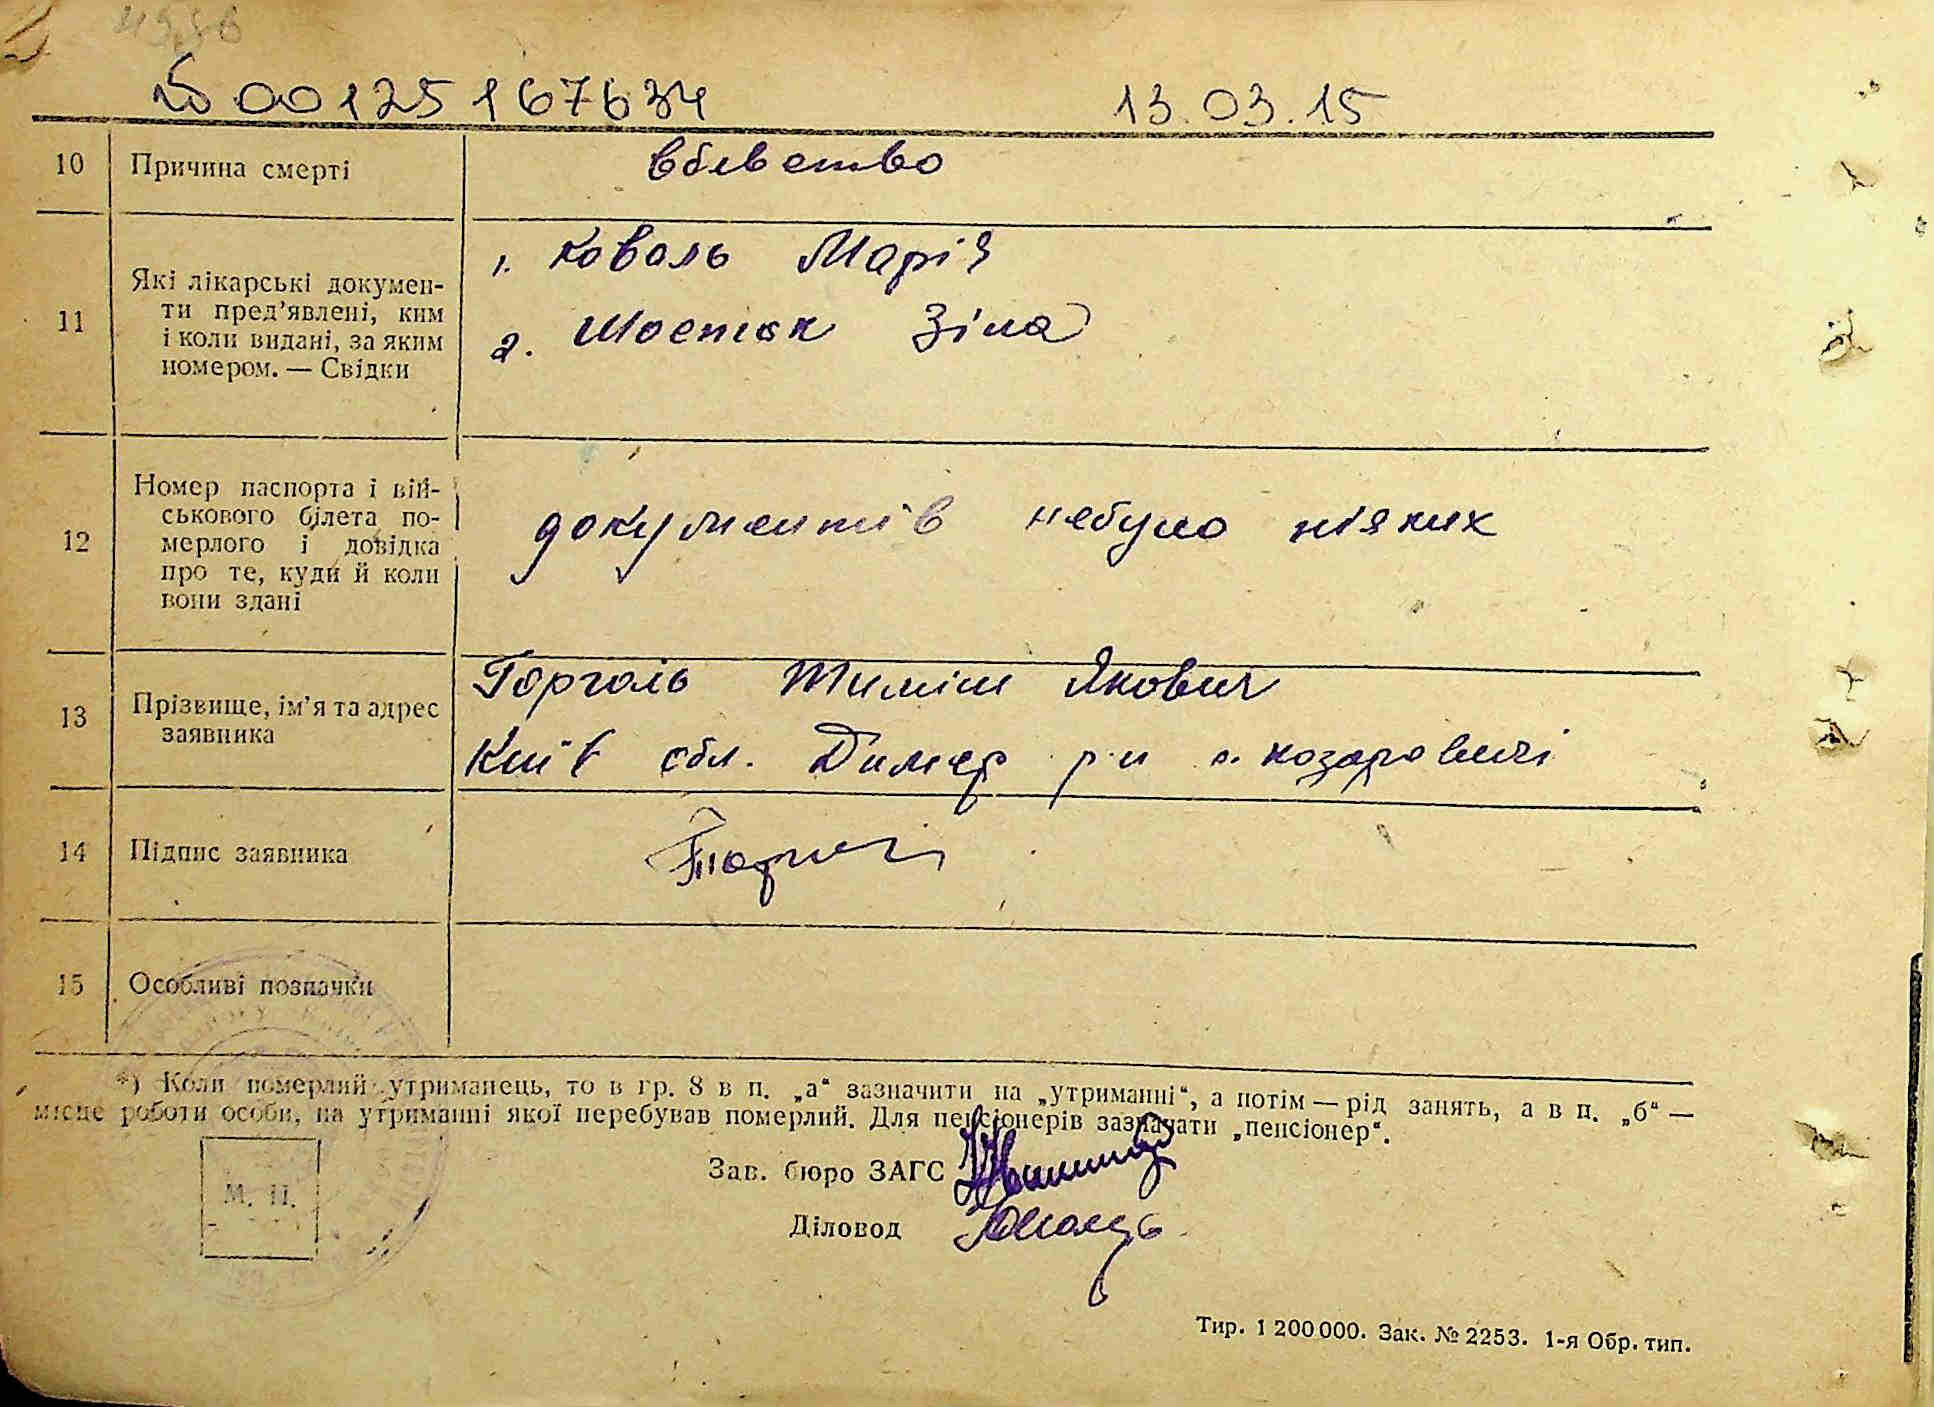 00125167634 13.03.15
10 Причина смерті вбивство
11 Які лікарські докумен-
ти пред’явлені, ким
і коли видані, за яким
номером. — Свідки
1. Коваль Марія
2. Шостак Зіна
12 Номер паспорта і вій-
ськового білета по-
мерлого і довідка
про те, куди й коли
вони здані
документів небуло ніяких
13 Прізвище, ім’я та адрес
заявника
Горголь Тиміш Якович
Київ обл. Димер р-н с. козаровичі
14 Підпис заявника
15 Особливі позначки
*) Коли померлий утриманець, то в гр. 8 в п. „а“ зазначити на „утриманні“, а потім — рід занять, а в п. „б“ —
місце роботи особи, на утриманні якої перебував померлий. Для пенсіонерів зазначати „пенсіонер“.
Зав. бюро ЗАГС
Діловод
М. П.
Тир. 1 200 000. Зак. № 2253. 1-я Обр. тип.